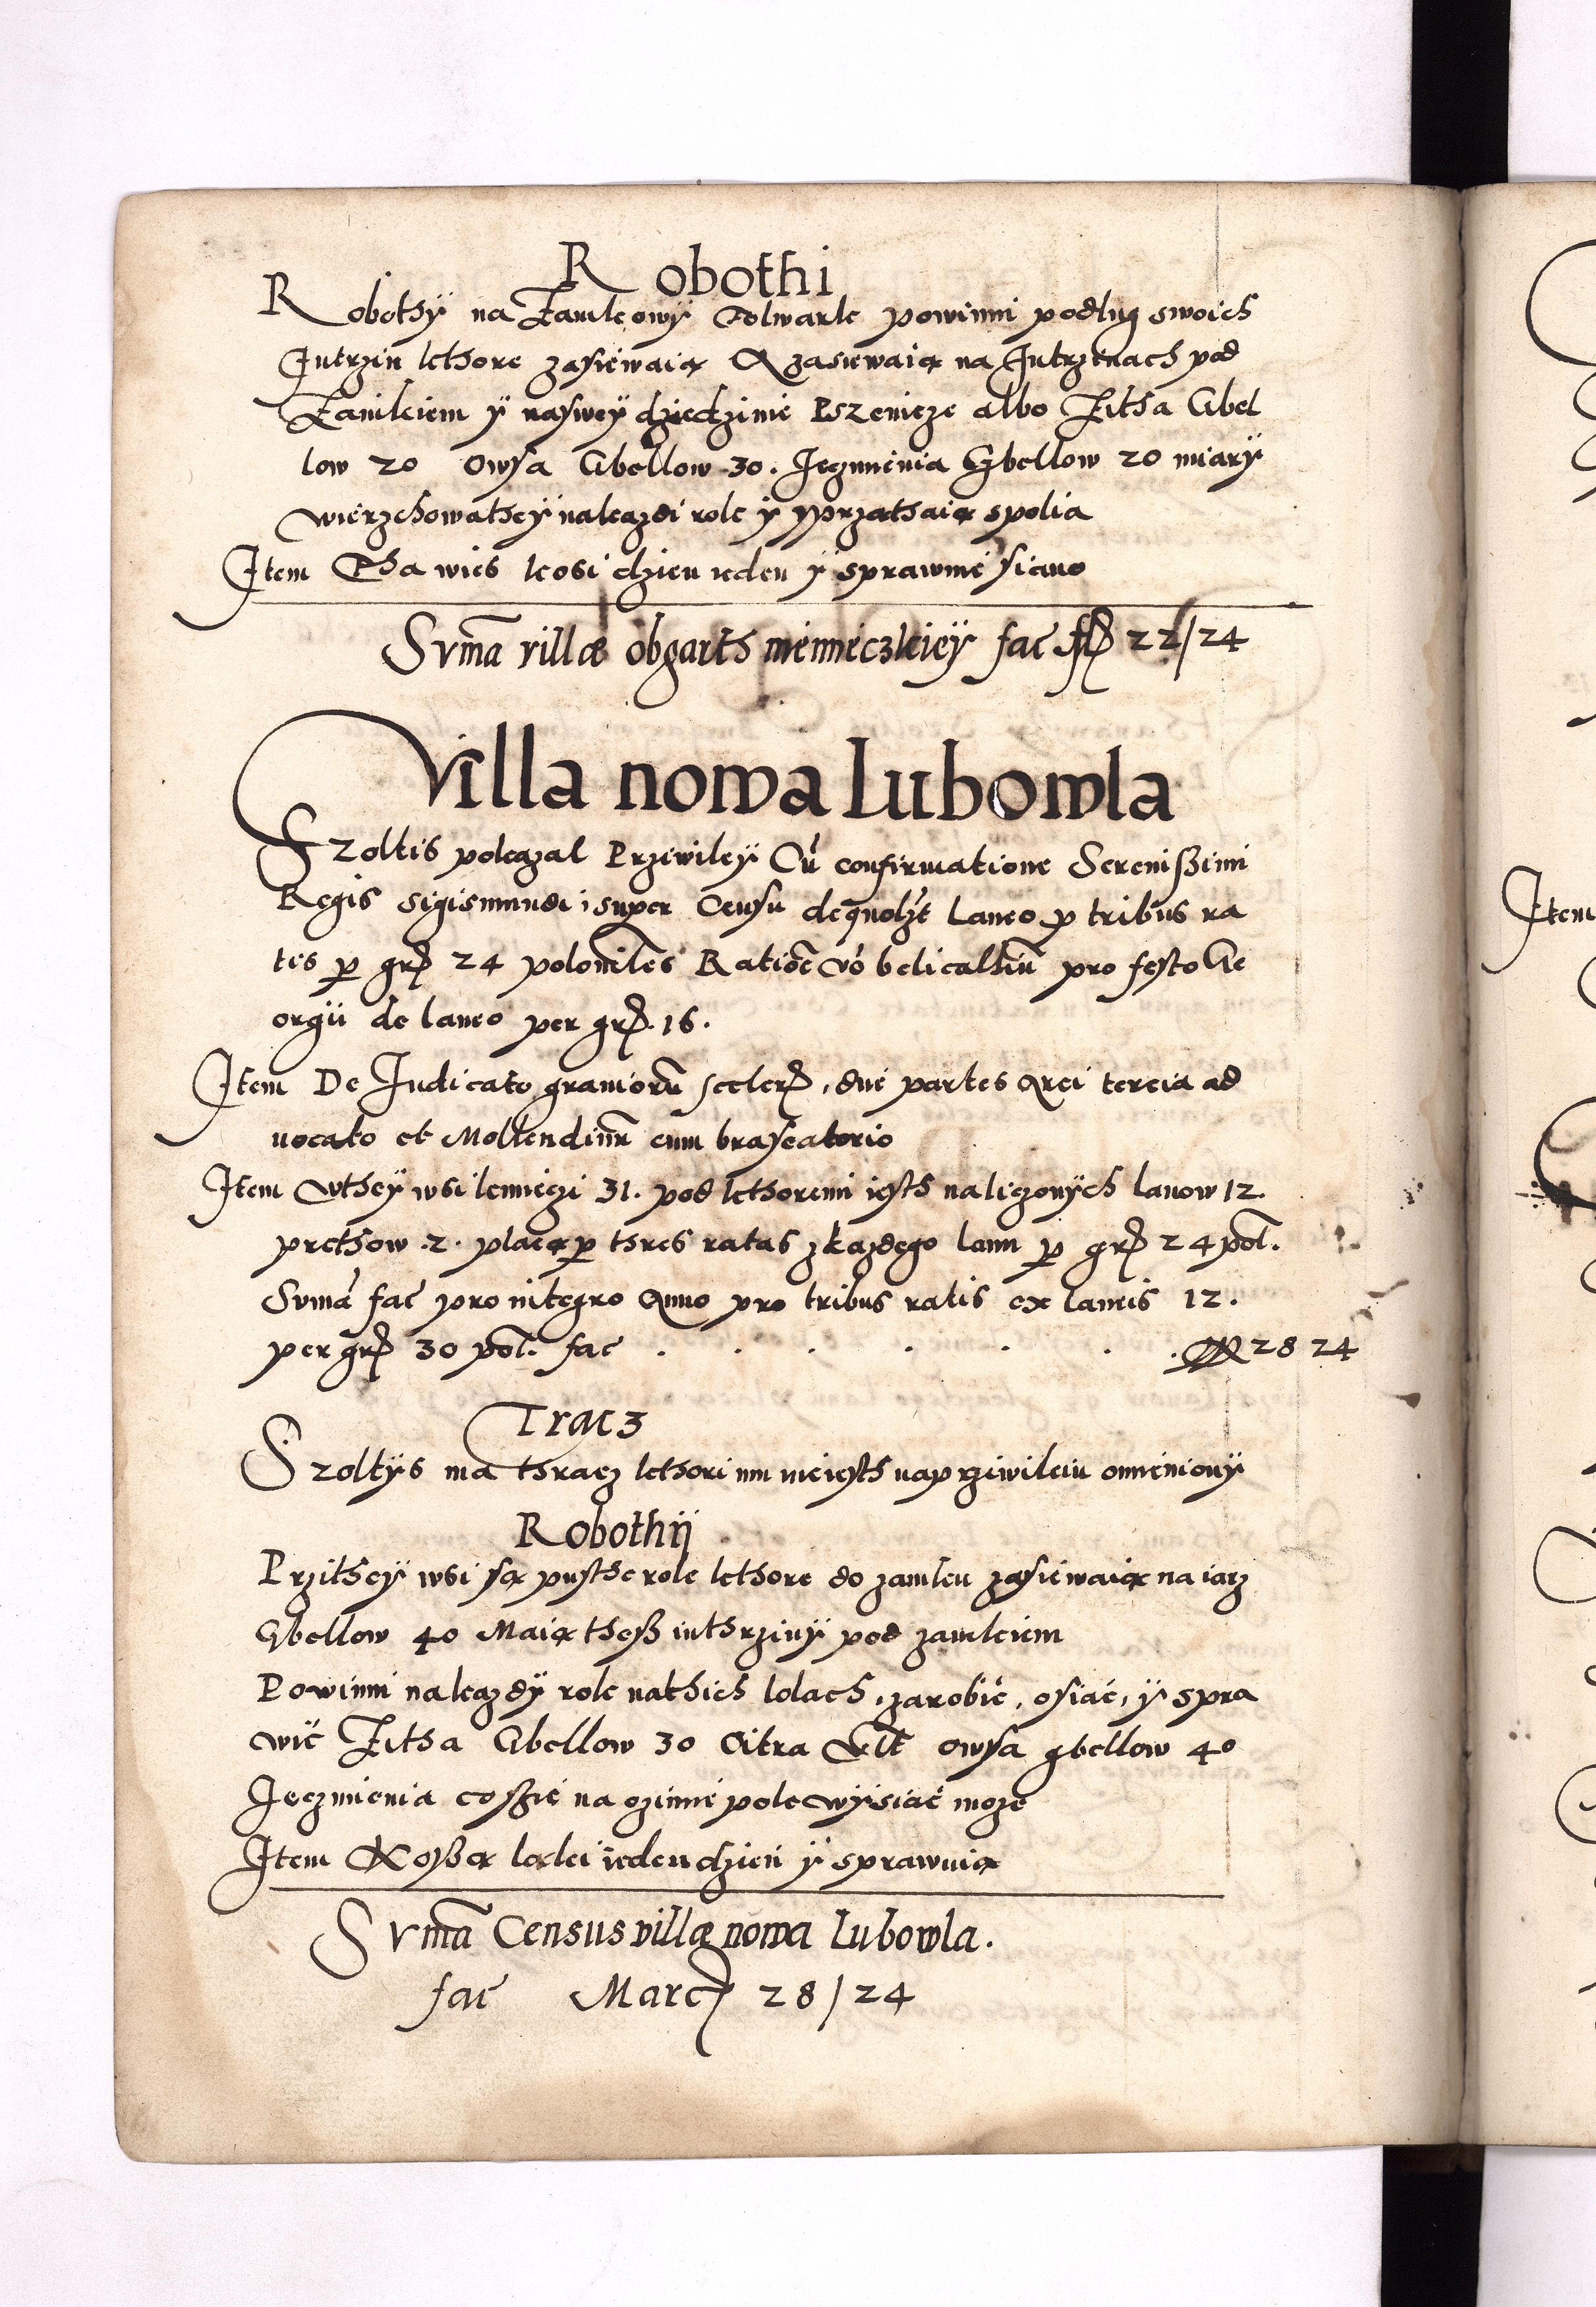 Robothi
Robothy na Zamkowy Folwark powinni podlug swoich
Jutrzin kthore zasiewaią A zasiewaią na Jutrznach pod
Zamkiem y naswey dziedzinie Pszenicze albo Zitha Gbel
low 20 Owsa Gbellow 30. Jęczmienia Gbellow 20 miary
wierzchowathey nakazdi role y yprzathaią spolia
Item Tha wies kosi dzien ieden y sprawnie siano
Sum̄a villæ obgarth niemieczkiey fac̄ fl 22/24
Villa nowa Lubowla
Szoltis pokazal Przewiley Cū confirmatione Serenißimi
Regis Sigismundi, super Censu de quolzt Laneo p tribus ra
tis p gr 24 polonilēs Ratioē vō belicaliū pro festo Ge
orgii de laneo per gr. 16.
Item De Judicato graviorū sceler, due partes Rei tercia ad
vocato et Mollendinū cum braseatorio
Item Wthey wsi kmieczi 31. pod kthoremi iesth naliczonych lanow 12.
prethow .2. placą p thres ratas zkazdego lanu p gr 24 pol.
Sum̄a fac̄ pro integro Anno pro tribus ratis ex laneis 12.
per gr 30 pol. fac . . . . . . 28 24
Tracz
Szoltys ma thracz kthori mu nie iesth naprziwileiu omieniony
Robothÿ
Przithey wsi są pusthe role kthore do zamku zasiewaią na iarz
Gbellow 40 Maią theß iuthrziny pod zamkiem
Powinni nakazdy rok nathich lolach, zarobić, osiać, y spra
wić Zitha Gbellow 30 Citra Ult Owsa gbellow 40
Jęczmienia coßie na ozimie pole wysiać moze
Item Koßą ląki ieden dzień y sprawuią
Sum̄a Census villæ nowa Lubowla.
fac̄ Marc 28/24
Item